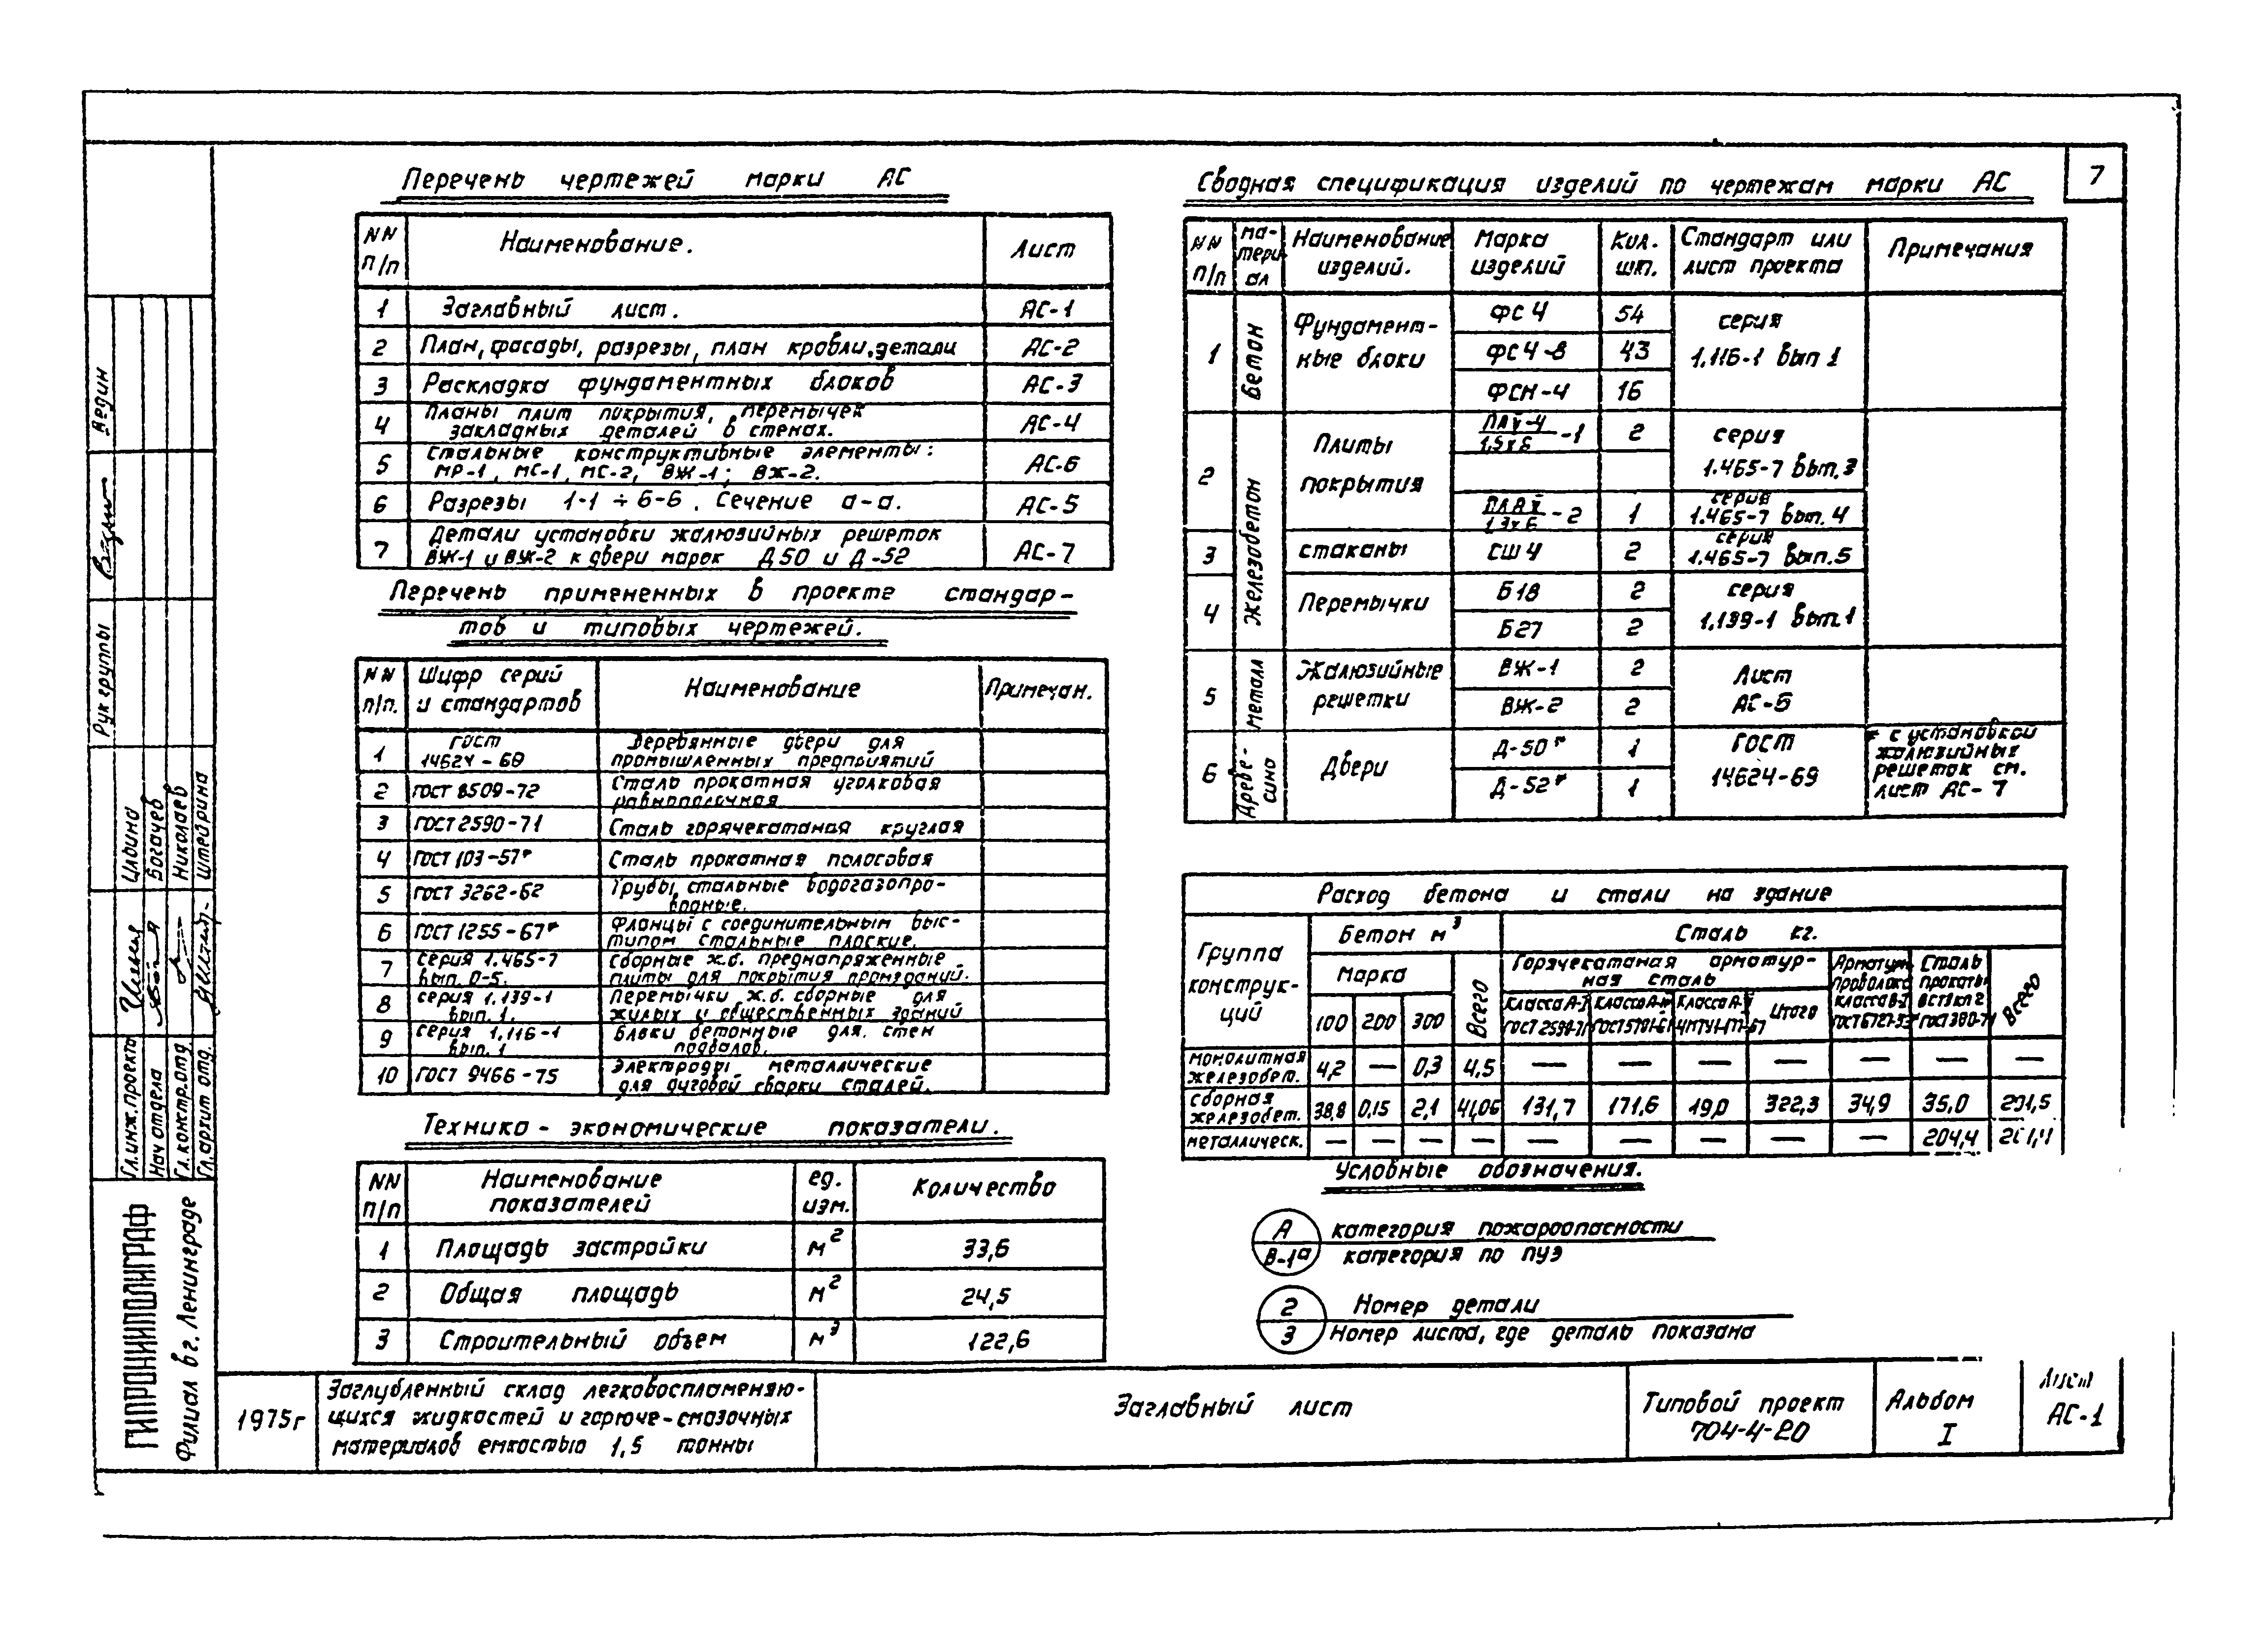 7
Перечень чертежей марки АС
NN п/п Наименование. Лист
1 Заглавный лист. АС-1
2 План, фасады, разрезы, план кровли, детали АС-2
3 Раскладка фундаментных блоков АС-3
4 Планы плит покрытия, перемычек
закладных деталей в стенах. АС-4
5 Стальные конструктивные элементы:
МР-1, МС-1, МС-2, ВЖ-1; ВЖ-2. АС-6
6 Разрезы 1-1 ÷ 6-6. Сечение а-а. АС-5
7 Детали установки жалюзийных решеток
ВЖ-1 и ВЖ-2 к двери марок Д50 и Д-52 АС-7
Перечень примененных в проекте стандар-
тов и типовых чертежей.
NN п/п. Шифр серий и стандартов Наименование Примечан.
1 ГОСТ 14624-69 Деревянные двери для
промышленных предприятий
2 ГОСТ 8509-72 Сталь прокатная уголковая
равнополочная
3 ГОСТ 2590-71 Сталь горячекатаная круглая
4 ГОСТ 103-57* Сталь прокатная полосовая
5 ГОСТ 3262-62 Трубы стальные водогазопро-
водные.
6 ГОСТ 1255-67* Фланцы с соединительным выс-
тупом стальные плоские.
7 серия 1.465-7 вып. 0-5. Сборные ж.б. преднапряженные
плиты для покрытия промзданий.
8 серия 1.139-1 вып. 1. Перемычки ж.б. сборные для
жилых и общественных зданий
9 серия 1.116-1 вып. 1 Блоки бетонные для стен
подвалов.
10 ГОСТ 9466-75 Электроды металлические
для дуговой сварки сталей.
Технико-экономические показатели.
NN п/п Наименование показателей ед. изм. Количество
1 Площадь застройки м² 33,6
2 Общая площадь м² 24,5
3 Строительный объем м³ 122,6
Сводная спецификация изделий по чертежам марки АС
NN п/п Материал Наименование изделий. Марка изделий Кол. шт. Стандарт или лист проекта Примечания
1 Бетон Фундамент-
ные блоки ФС 4 54 серия
1.116-1 вып 1
ФС4-8 43
ФСН-4 16
2 Железобетон Плиты
покрытия 1,5х6 -1 2 серия
1.465-7 вып. 3
-2 1 серия
1.465-7 вып. 4
3 стаканы СШ 4 2 серия
1.465-7 вып. 5
4 Перемычки Б18 2 серия
Б27 2 1.139-1 вып.1
5 Металл Жалюзийные
решетки ВЖ-1 2 Лист
ВЖ-2 2 АС-6
6 Древе-
сина Двери Д-50* 1 ГОСТ
Д-52* 1 14624-69
* с установкой
жалюзийных
решеток см.
лист АС-7
Расход бетона и стали на здание
Группа конструк-
ций Бетон м³ Сталь кг.
Марка Всего Горячекатаная арматур-
ная сталь Арматурн. проволока класса В-I Сталь прокатн. Всего
100 200 300 Класса А-I Класса А-III Итого
монолитная
железобет. 4,2 — 0,3 4,5 — — — — — — —
сборная
железобет. 38,8 0,15 2,1 41,06 131,7 171,6 19,0 322,3 34,9 35,0
металлическ. — — — — — — — — — 204,4
Условные обозначения.
А категория пожароопасности
В-1а категория по ПУЭ
2 Номер детали
3 Номер листа, где деталь показана
1975г
Заглубленный склад легковоспламеняю-
щихся жидкостей и горюче-смазочных
материалов емкостью 1,5 тонны
Заглавный лист
Типовой проект
704-4-20
Альбом
I
Лист
АС-1
ГИПРОНИИПОЛИГРАФ
Филиал в г. Ленинграде
Гл. инж. проекта
Нач отдела Богачев
Гл. констр. отд Николаев
Гл. архит отд. Штедрина
Рук группы Ведин